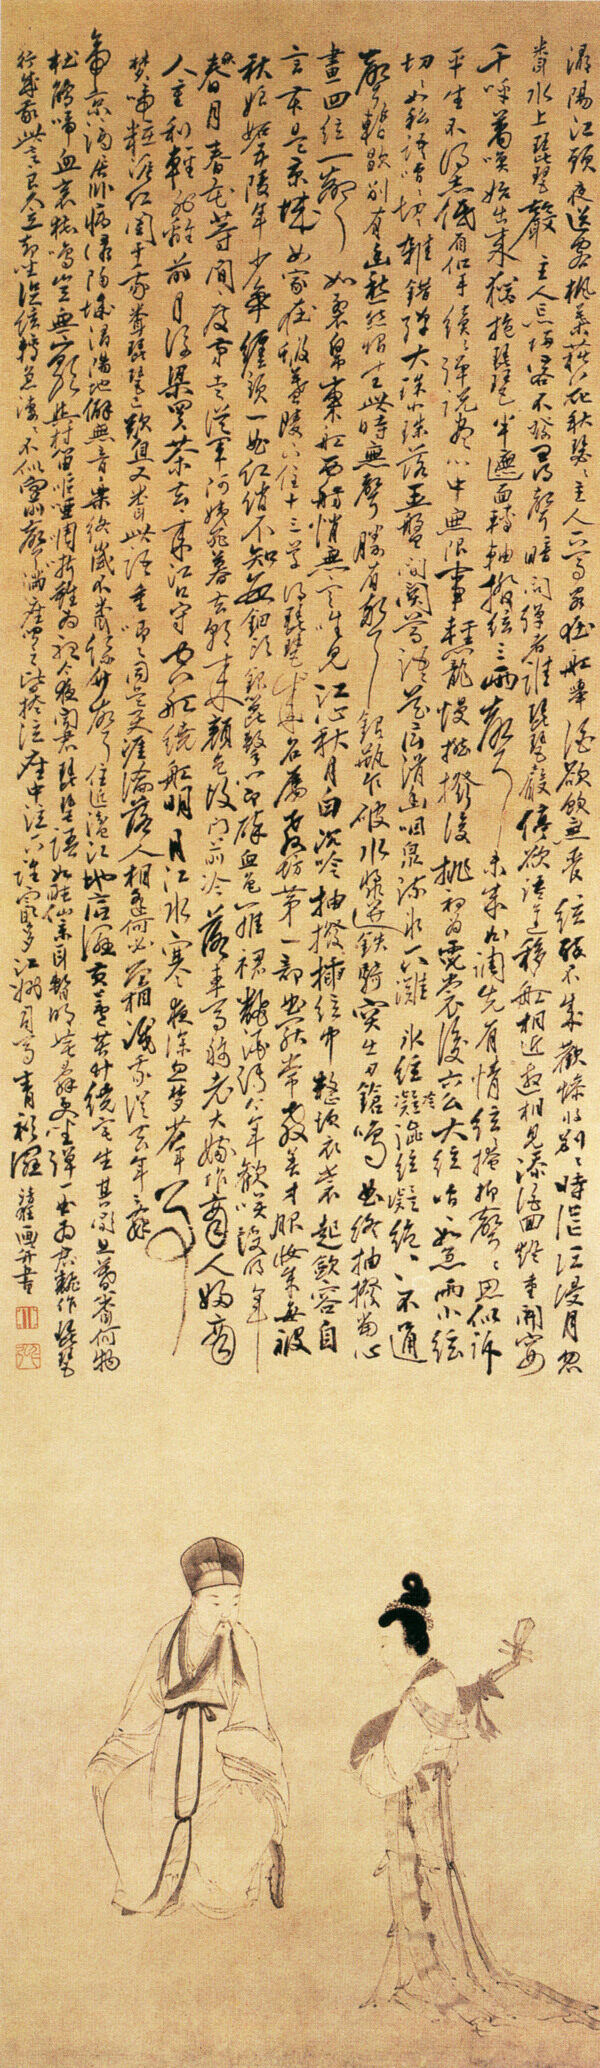 潯陽江頭夜送客楓葉荻花秋瑟瑟主人下馬客在舡舉酒欲飲無管絃醉不成歡慘將別別時茫茫江浸月忽
聞水上琵琶聲主人忘歸客不發尋聲暗問彈者誰琵琶聲停欲語遲移舡相近邀相見添酒回燈重開宴
千呼萬喚始出來猶抱琵琶半遮面轉軸撥絃三兩聲未成曲調先有情絃絃掩抑聲聲思似訴
平生不得志低眉信手續續彈說盡心中無限事輕攏慢撚撥復挑初為霓裳後六么大絃嘈嘈如急雨小絃
切切如私語嘈嘈切切雜錯彈大珠小珠落玉盤間關鶯語花底滑幽咽泉流水下灘氷絃冷澁絃凝絕凝絕不通
聲暫歇別有幽愁暗恨生此時無聲勝有聲銀瓶乍破水漿迸鐵騎突出刀鎗鳴曲終抽撥當心
畫四絃一聲如裂帛東舡西舫悄無言唯見江心秋月白沉吟抽撥插絃中整頓衣裳起斂容自
言本是京城女家在蝦蟇陵下住十三學得琵琶成名屬教坊第一部曲罷常教善才服妝成每被
秋娘妬五陵年少爭纏頭一曲紅綃不知數鈿頭銀篦擊節碎血色羅裙翻酒污今年歡笑復明年
秋月春花等閒度弟走從軍阿姨死暮去朝來顏色故門前冷落車馬稀老大嫁作商人婦商
人重利輕別離前月浮梁買茶去去來江口守空舡繞舡明月江水寒夜深忽夢少年事
夢啼粧淚紅闌干我聞琵琶已歎息又聞此語重唧唧同是天涯淪落人相逢何必曾相識我從去年辭
帝京謫居臥病潯陽城潯陽地僻無音樂終歲不聞絲竹聲住近湓江地低濕黃蘆苦竹繞宅生其間旦暮聞何物
杜鵑啼血哀猿鳴豈無山歌與村笛嘔啞嘲哳難為聽今夜聞君琵琶語如聽仙樂耳暫明莫辭更坐彈一曲為君翻作琵琶
行感我此言良久立却坐促絃絃轉急淒淒不似向前聲滿座聞之皆掩泣座中泣下誰最多江州司馬青衫濕 清狂畫并書